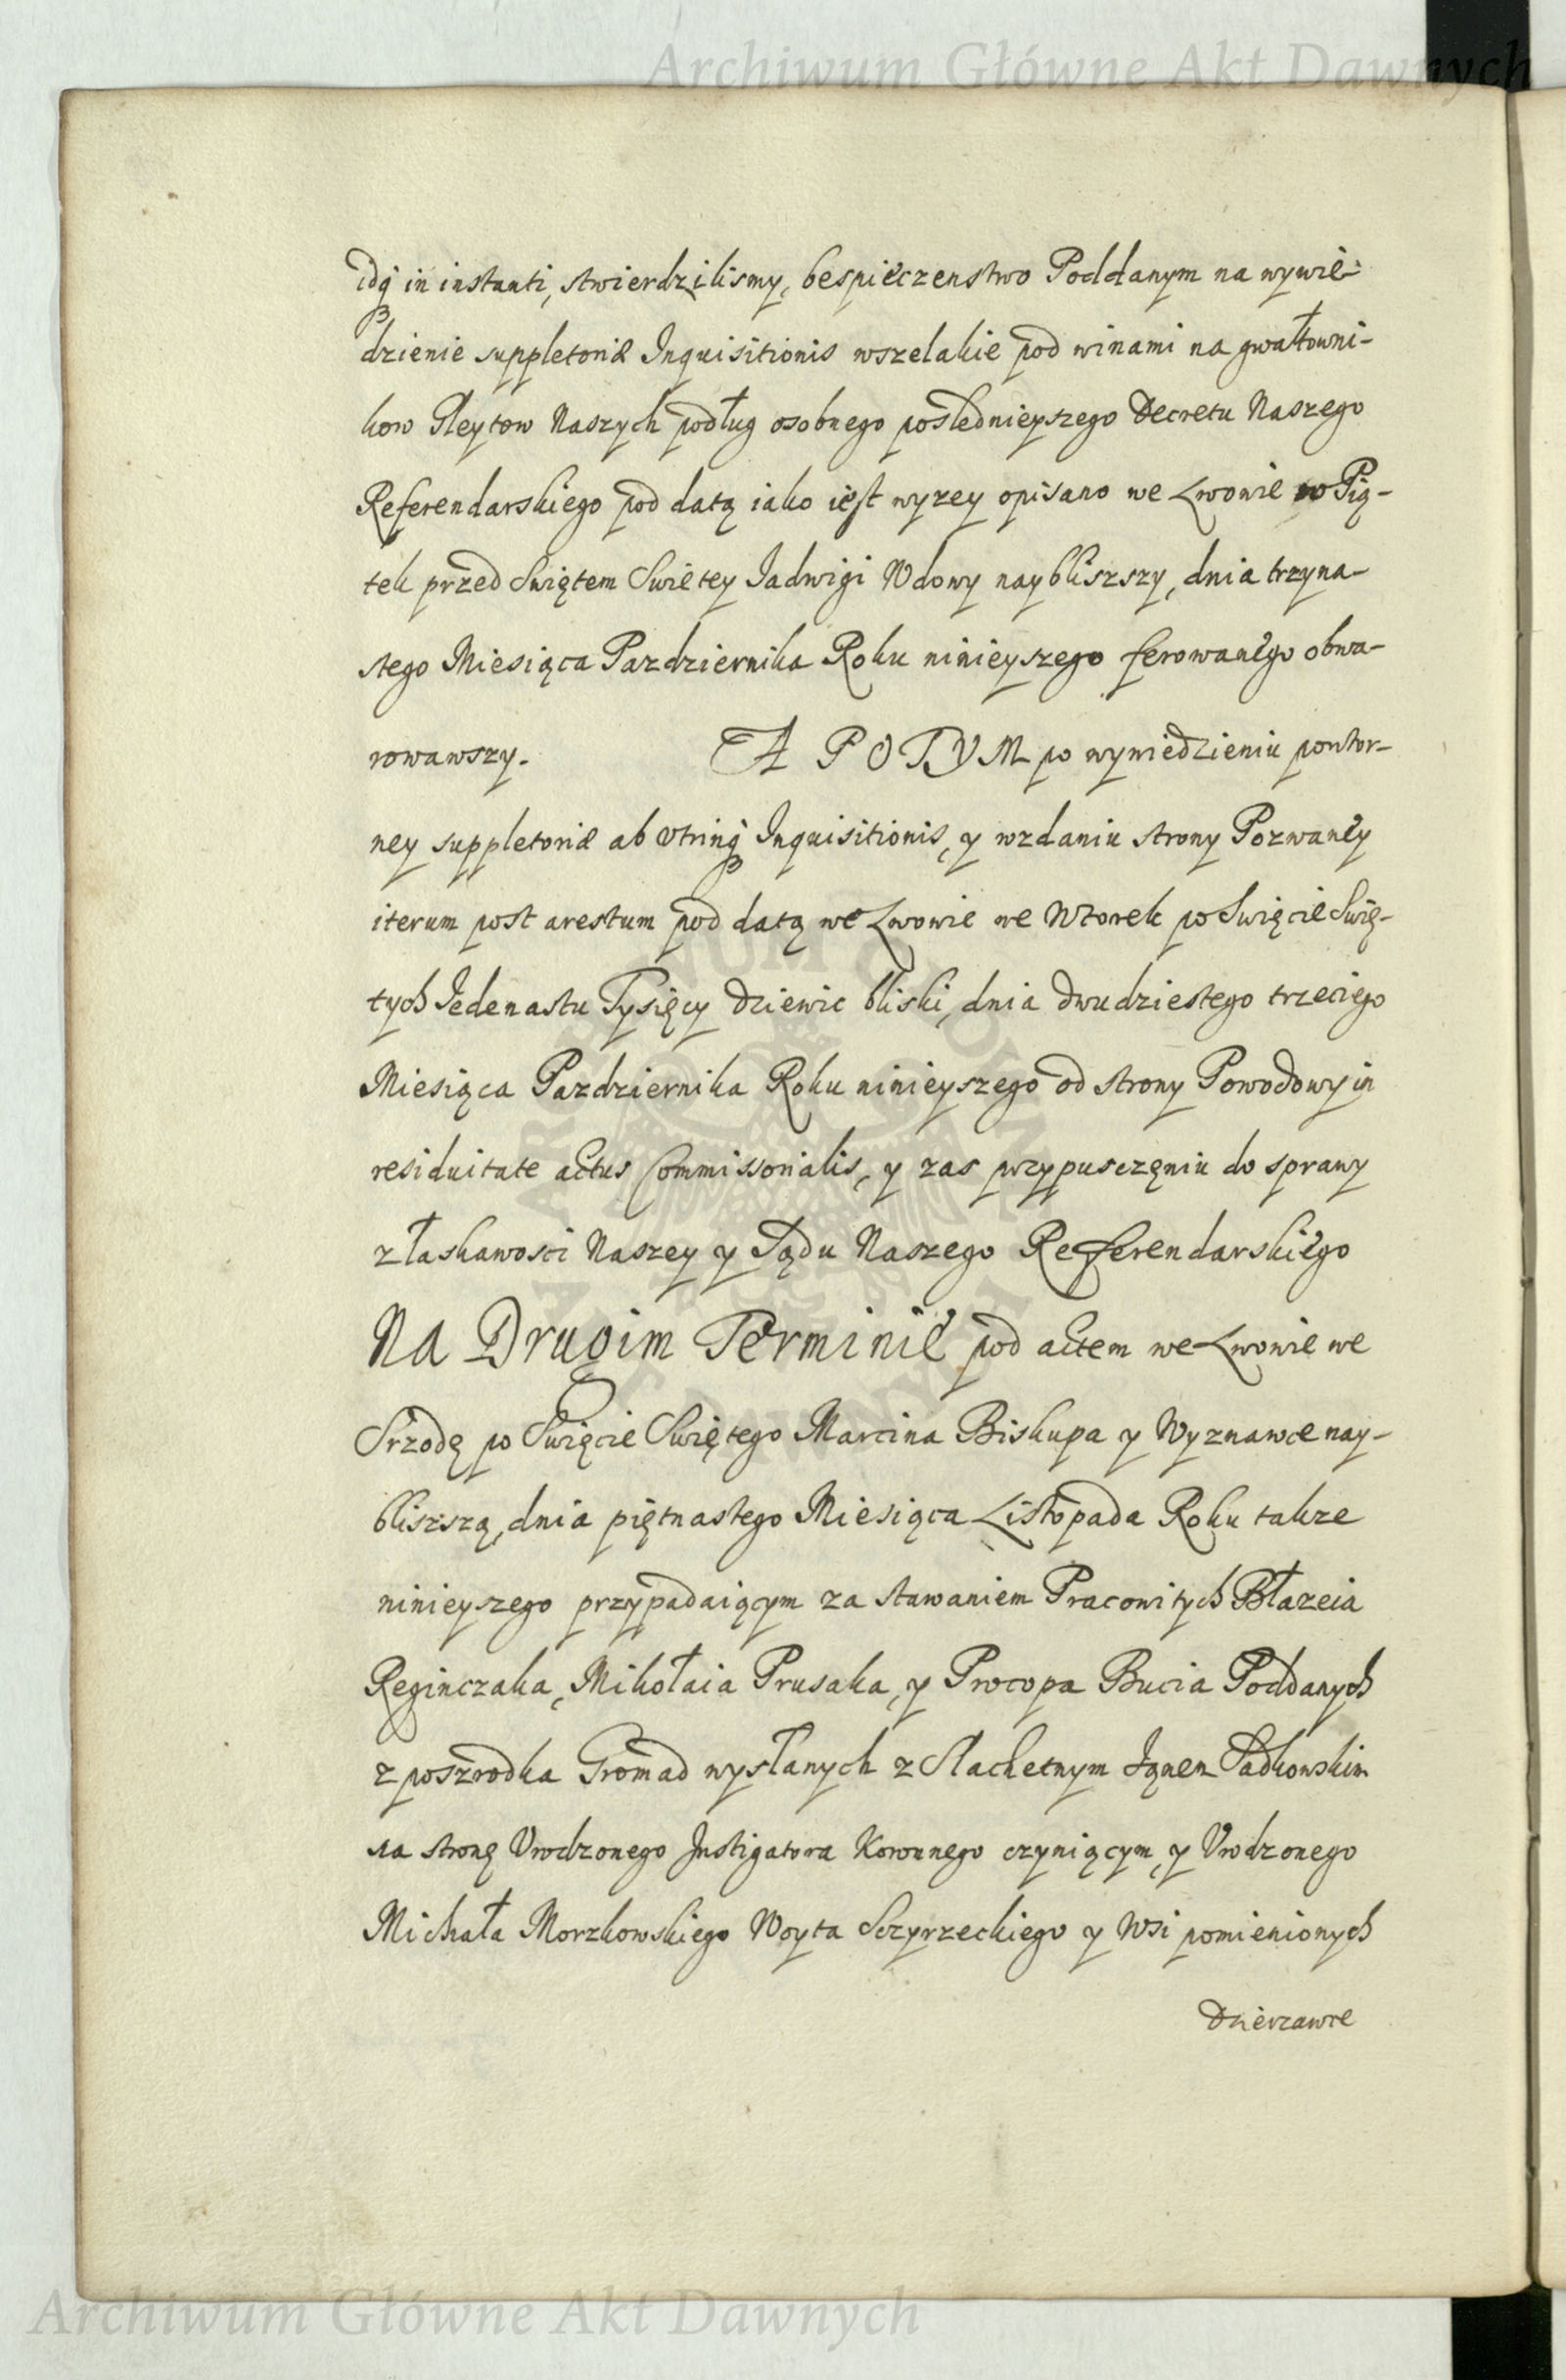 Archiwum Główne Akt Dawnych
idq́ in instanti, stwierdzilismy, bespieczenstwo Poddanym na wywie-
dzienie suppletoriæ Inquisitionis wszelakie pod winami na gwałtowni-
kow Gleytow Naszych podług osobnego poslednieyszego Decretu Naszego
Referendarskiego pod datą iako iest wyzey opisano we Lwowie w Pią-
tek przed Swiętem Swietey Jadwigi Wdowy naybliszszy, dnia trzyna-
stego Miesiąca Pazdziernika Roku ninieyszego ferowanego obwa-
rowawszy. A POTYM po wywiedzieniu powtor-
ney suppletoriæ ab vtrinq́ Inquisitionis, y wzdaniu strony Pozwaney
iterum post arestum pod datą we Lwowie we Wtorek po Swięcie Swię-
tych Jedenastu Tysięcy Dziewic bliski, dnia dwudziestego trzeciego
Miesiąca Pazdziernika Roku ninieyszego od strony Powodowy in
residuitate actus Commissorialis, y zas przypusczęniu do sprawy
z łaskawosci Naszey y Sądu Naszego Referendarskiego
NA Drugim Terminie pod actem we Lwowie we
Srzodę po Swięcie Swiętego Marcina Biskupa y Wyznawce nay-
bliszszą, dnia piętnastego Miesiąca Listopada Roku takze
ninieyszego przypadaiącym za stawaniem Pracowitych Błazeia
Reginczaka, Mikołaia Prusaka, y Procopa Bucia Poddanych
z poszrodka Gromad wysłanych z Slachetnym Janem Sadkowskim
na stronę Vrodzonego Instigatora Koronnego czyniącym, y Vrodzonego
Michała Morzkowskiego Woyta Sczyrzeckiego y Wsi pomienionych
Dzierzawce
Archiwum Główne Akt Dawnych